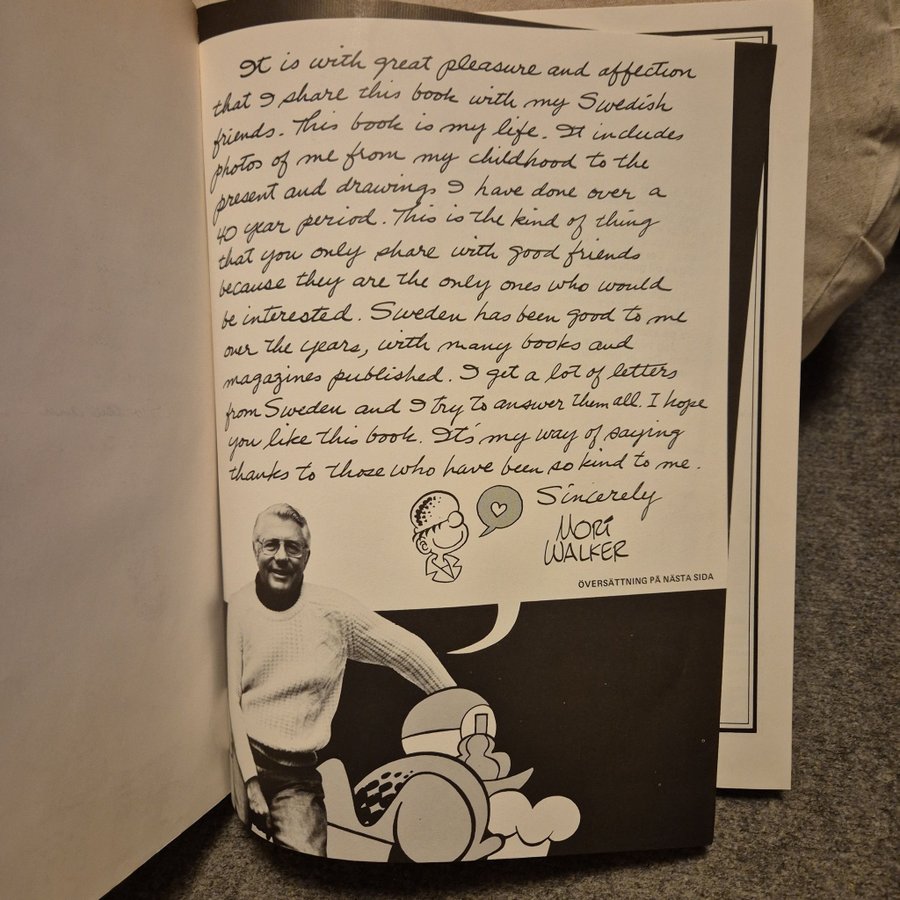 It is with great pleasure and affection
that I share this book with my Swedish
friends. This book is my life. It includes
photos of me from my childhood to the
present and drawings I have done over a
40 year period. This is the kind of thing
that you only share with good friends
because they are the only ones who would
be interested. Sweden has been good to me
over the years, with many books and
magazines published. I get a lot of letters
from Sweden and I try to answer them all. I hope
you like this book. It's my way of saying
thanks to those who have been so kind to me.
Sincerely
MORT
WALKER
ÖVERSÄTTNING PÅ NÄSTA SIDA